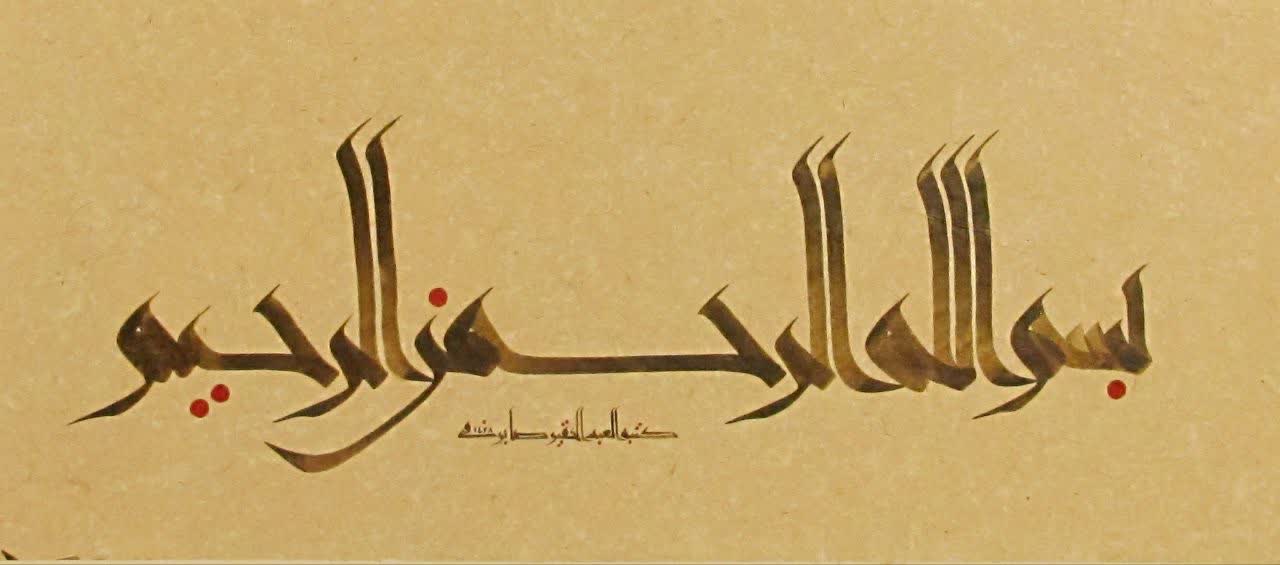 بسم الله الرحمن الرحيم
كتبه العبد الفقير صابر في ١٤٢٨